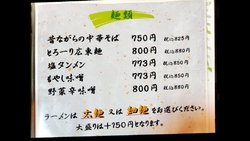 麺類
昔ながらの中華そば 750円 税込825円
とろ～り広東麺 800円 税込880円
塩タンメン 773円 税込850円
もやし味噌 773円 税込850円
野菜辛味噌 800円 税込880円
ラーメンは 太麺 又は 細麺 をお選びください。
大盛りは+150円となります。